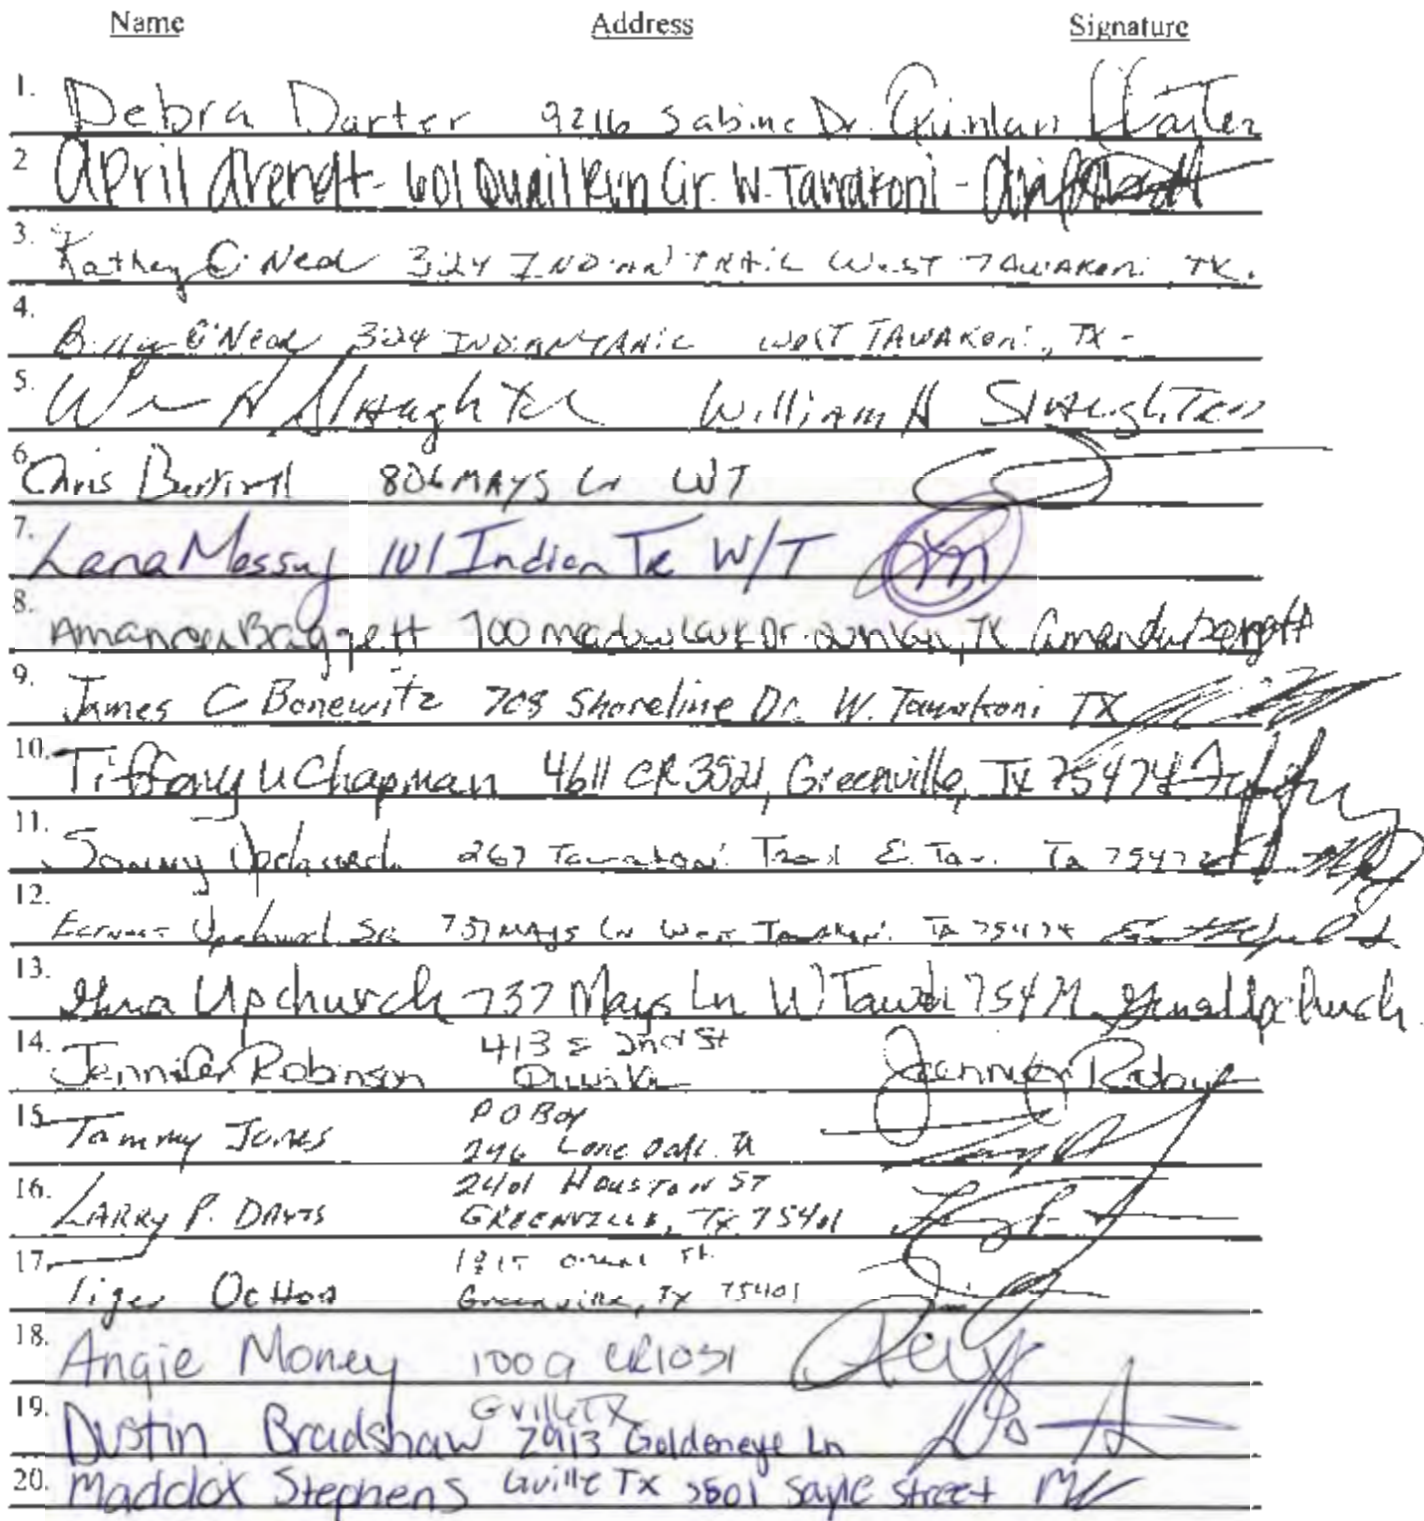 Name Address Signature
1. Debra Darter 9216 Sabine Dr. Quinlan
2 April Arendt - 601 Quail Run Cir. W. Tawakoni -
3. Kathey O'Neal 324 INDIAN TRAIL WEST TAWAKONI TX.
4. Billy O'Neal 324 INDIAN TRAIL WEST TAWAKONI, TX -
5. Wm H Slaughter William H Slaughter
6. Chris 806 MAYS Ln WT
7. Lana Massey 101 Indian Tr W/T
8. Amanda Baggett 700 meadowlark Dr. Quinlan, TX Amanda Baggett
9. James C Bonewitz 708 Shoreline Dr. W. Tawakoni TX
10. Tiffany U Chapman 4611 CR 3521, Greenville, TX 75474
11. Sonny Upchurch 267 Tawakoni Trail E. Taw. Tx 7547
12. Upchurch SR 737 MAYS LN West Tawakoni Tx 75474
13. Gena Upchurch 737 Mays Ln W Tawak Gena Upchurch
14. Jennifer Robinson 413 E 2nd St Jennifer
15 Tammy Jones P O Box
246 Lone Oak. Tx
16. LARRY P. DAVIS 2401 HOUSTON ST
GREENVILLE, TX 75401
17. Tiger Ochoa
Greenville, TX 75401
18. Angie Money 1009 CR1031
Gville TX
19. Dustin Bradshaw 2913 Goldeneye Ln
20. Maddox Stephens Gville TX 3501 Sayle Street